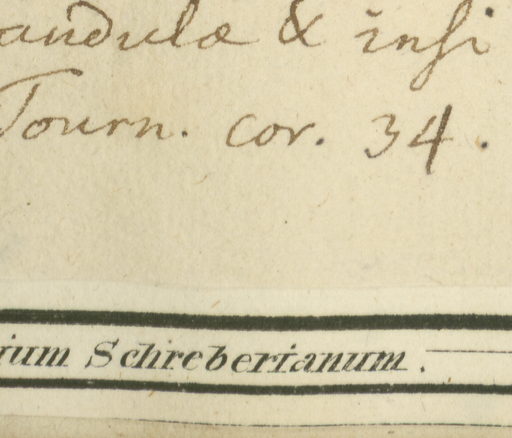 andulæ & insi
Tourn. cor. 34.
ium Schreberianum.